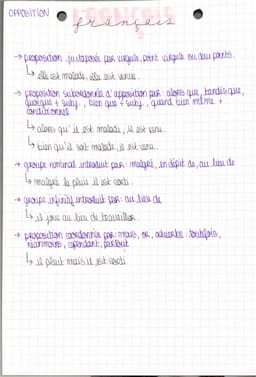 OPPOSITION
français
→ proposition juxtaposée par virgule, point virgule ou deux points.
↳ elle est malade, elle est venue.
→ proposition subordonnée d'opposition par: alors que, tandis que,
quoique + subj., bien que + subj., quand bien même +
conditionnel
↳ alors qu'il est malade, il est venu.
↳ bien qu'il soit malade, il est venu.
→ groupe nominal introduit par: malgré, en dépit de, au lieu de
↳ malgré la pluie il est sorti.
→ groupe infinitif introduit par: au lieu de
↳ il joue au lieu de travailler.
→ proposition coordonnée par: mais, or, adverbe: toutefois,
néanmoins, cependant, pourtant
↳ il pleut mais il est sorti